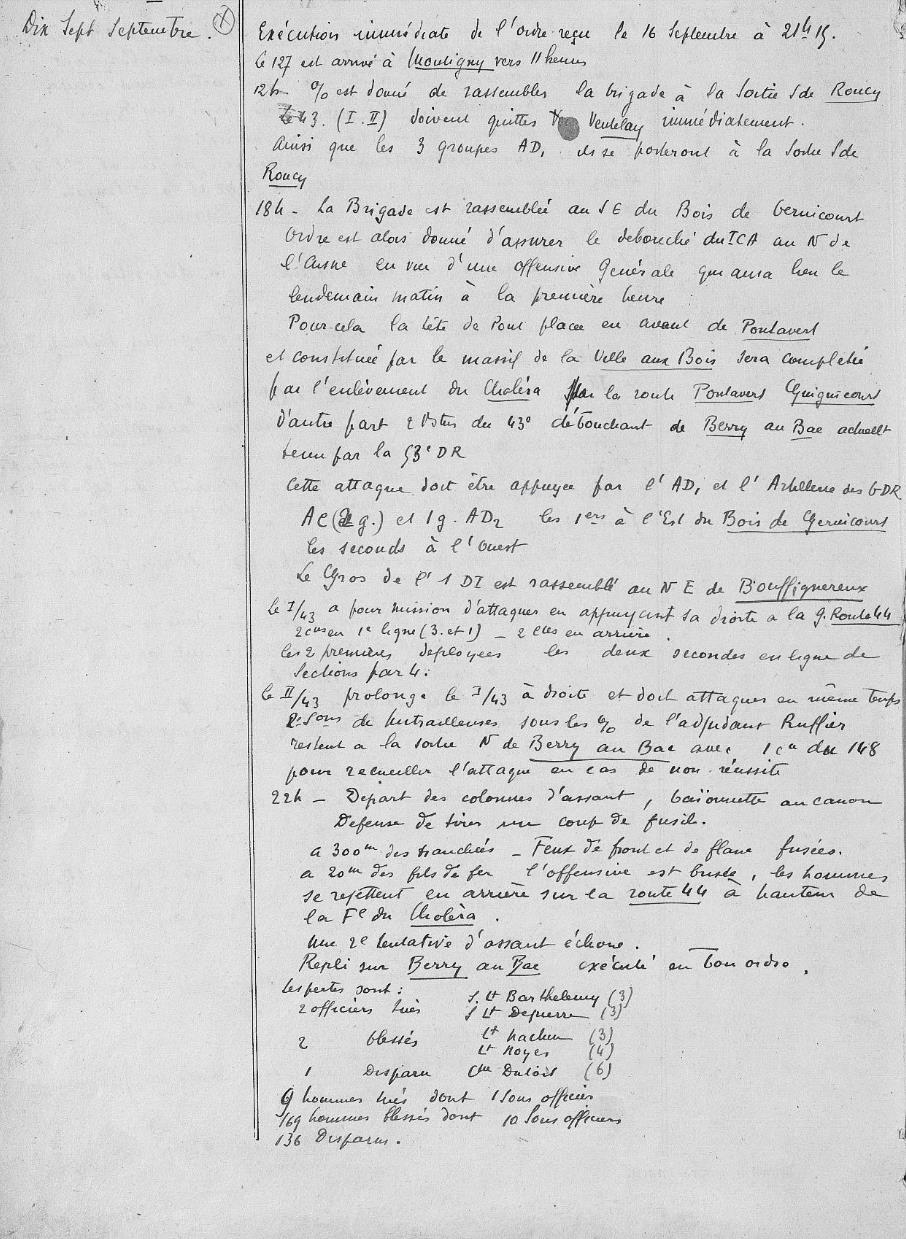 Dix Sept Septembre. (X)
Exécution immédiate de l'ordre reçu le 16 Septembre à 21h 15.
le 127 est arrivé à Montigny vers 11 heures
12h o/o est donné de rassembler la brigade à la Sortie S de Roucy
Le 43. (I. II) doivent quitter Ventelay immédiatement.
Ainsi que les 3 groupes AD1 ils se porteront à la Sortie S de
Roucy
18h - La Brigade est rassemblée au S E du Bois de Gernicourt
Ordre est alors donné d'assurer le débouché du 1CA au N de
l'Aisne en vue d'une offensive Générale qui aura lieu le
lendemain matin à la première heure
Pour cela la tête de Pont placée en avant de Pontavert
et constituée par le massif de la Ville aux Bois sera complétée
par l'enlèvement du Choléra par la route Pontavert Guignicourt
D'autre part 2 Btons du 43e débouchant de Berry au Bac actuellt
tenu par la 53e DR
Cette attaque doit être appuyée par l'AD1 et l'Artillerie des 6 DR
AC (2 g.) et 1 g. AD2 les 1ers à l'Est du Bois de Gernicourt
les seconds à l'Ouest
Le Gros de l'1 DI est rassemblé au N E de Bouffignereux
le I/43 a pour mission d'attaquer en appuyant sa droite à la g. Route 44
2 cies en 1e ligne (3. et 1) - 2 cies en arrière.
les 2 premières déployées les deux secondes en ligne de
Sections par 4.
le II/43 prolonge le I/43 à droite et doit attaquer en même temps
2 Sons de Mitrailleuses sous les o/o de l'adjudant Ruffier
restent à la sortie N de Berry au Bac avec 1 cie du 148
pour recueillir l'attaque en cas de non-réussite
22h - Départ des colonnes d'assaut, baïonnette au canon
Défense de tirer un coup de fusil.
a 300m des tranchées - Feux de front et de flanc fusées.
a 20m des fils de fer l'offensive est brisée, les hommes
se rejettent en arrière sur la route 44 à hauteur de
la Fe du Choléra.
Une 2e tentative d'assaut échoue.
Repli sur Berry au Bac exécuté en bon ordre.
Les pertes sont:
2 officiers tués S. Lt Barthelemy (3)
S Lt Depierre (3)
2 blessés Lt (3)
Lt Noyer (4)
1 Disparu Cne Dubois (6)
9 hommes tués dont 1 Sous officier
169 hommes blessés dont 10 Sous officiers
136 Disparus.